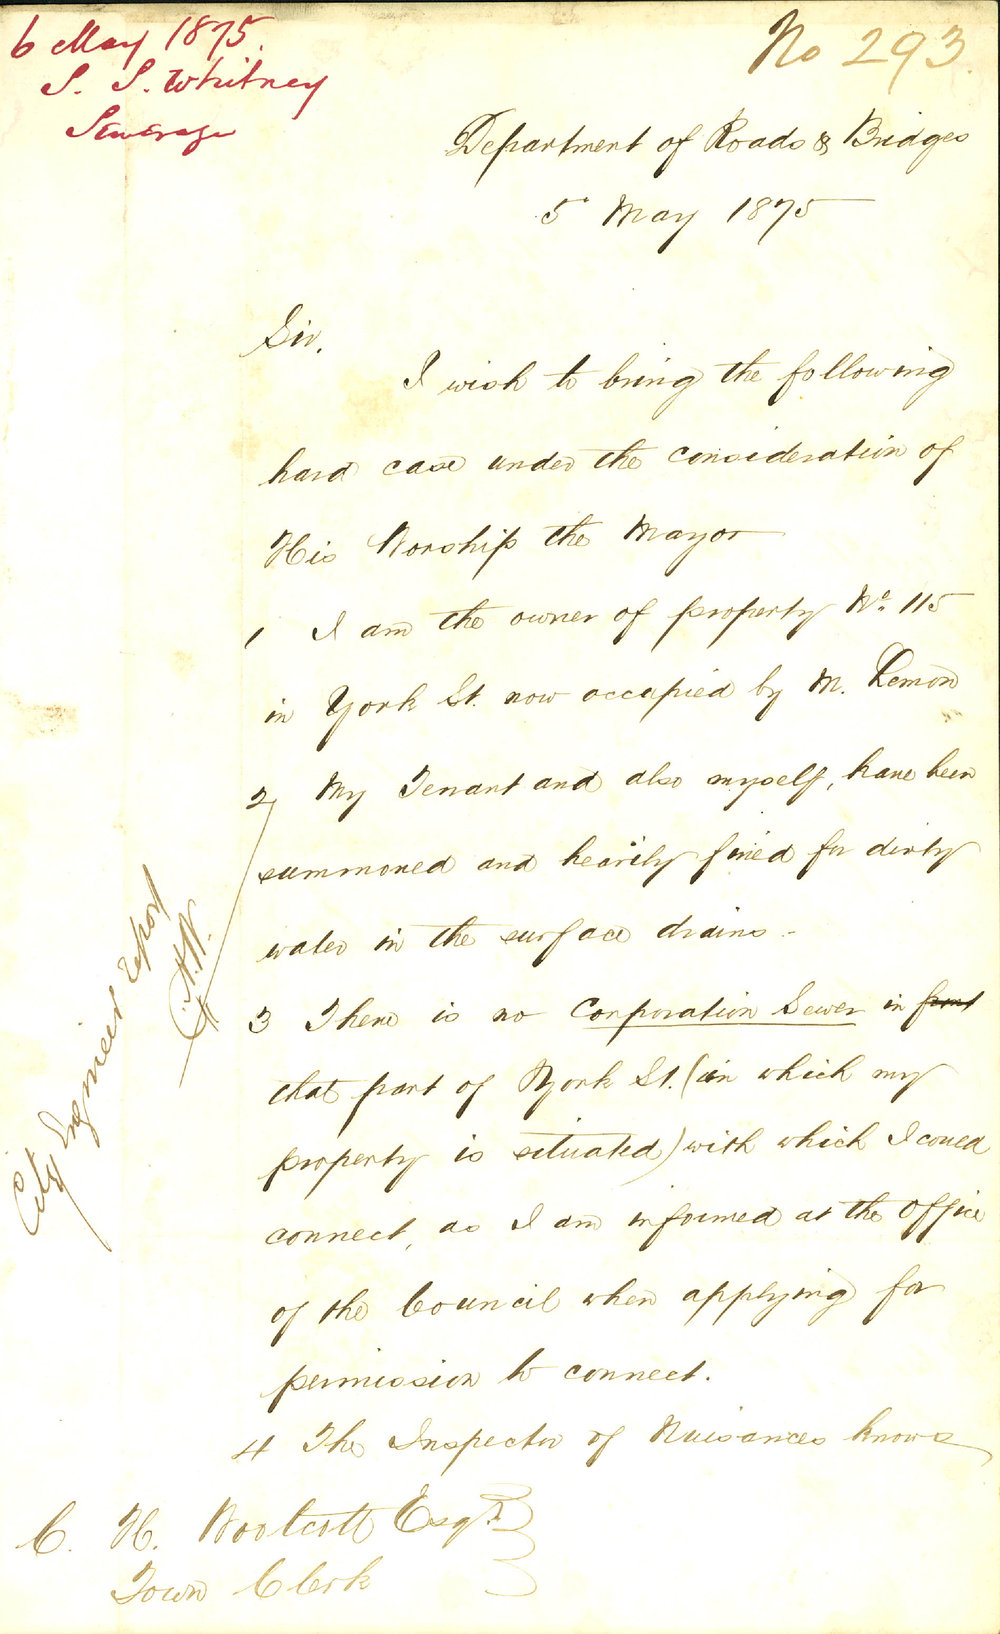 6 May 1875.
S. S. Whitney
Sewerage
No 293.
Department of Roads & Bridges
5 May 1875
Sir,
I wish to bring the following
hard case under the consideration of
His Worship the Mayor
1 I am the owner of property No. 115
in York St. now occupied by M. Lemon
2 My Tenant and also myself, have been
summoned and heavily fined for dirty
water in the surface drains -
3 There is no Corporation Sewer in front
that part of York St. (in which my
property is situated) with which I could
connect, as I am informed at the Office
of the Council when applying for
permission to connect.
4 The Inspector of Nuisances knows
C. H. Woolcott Esqr.
Town Clerk
City Engineer report